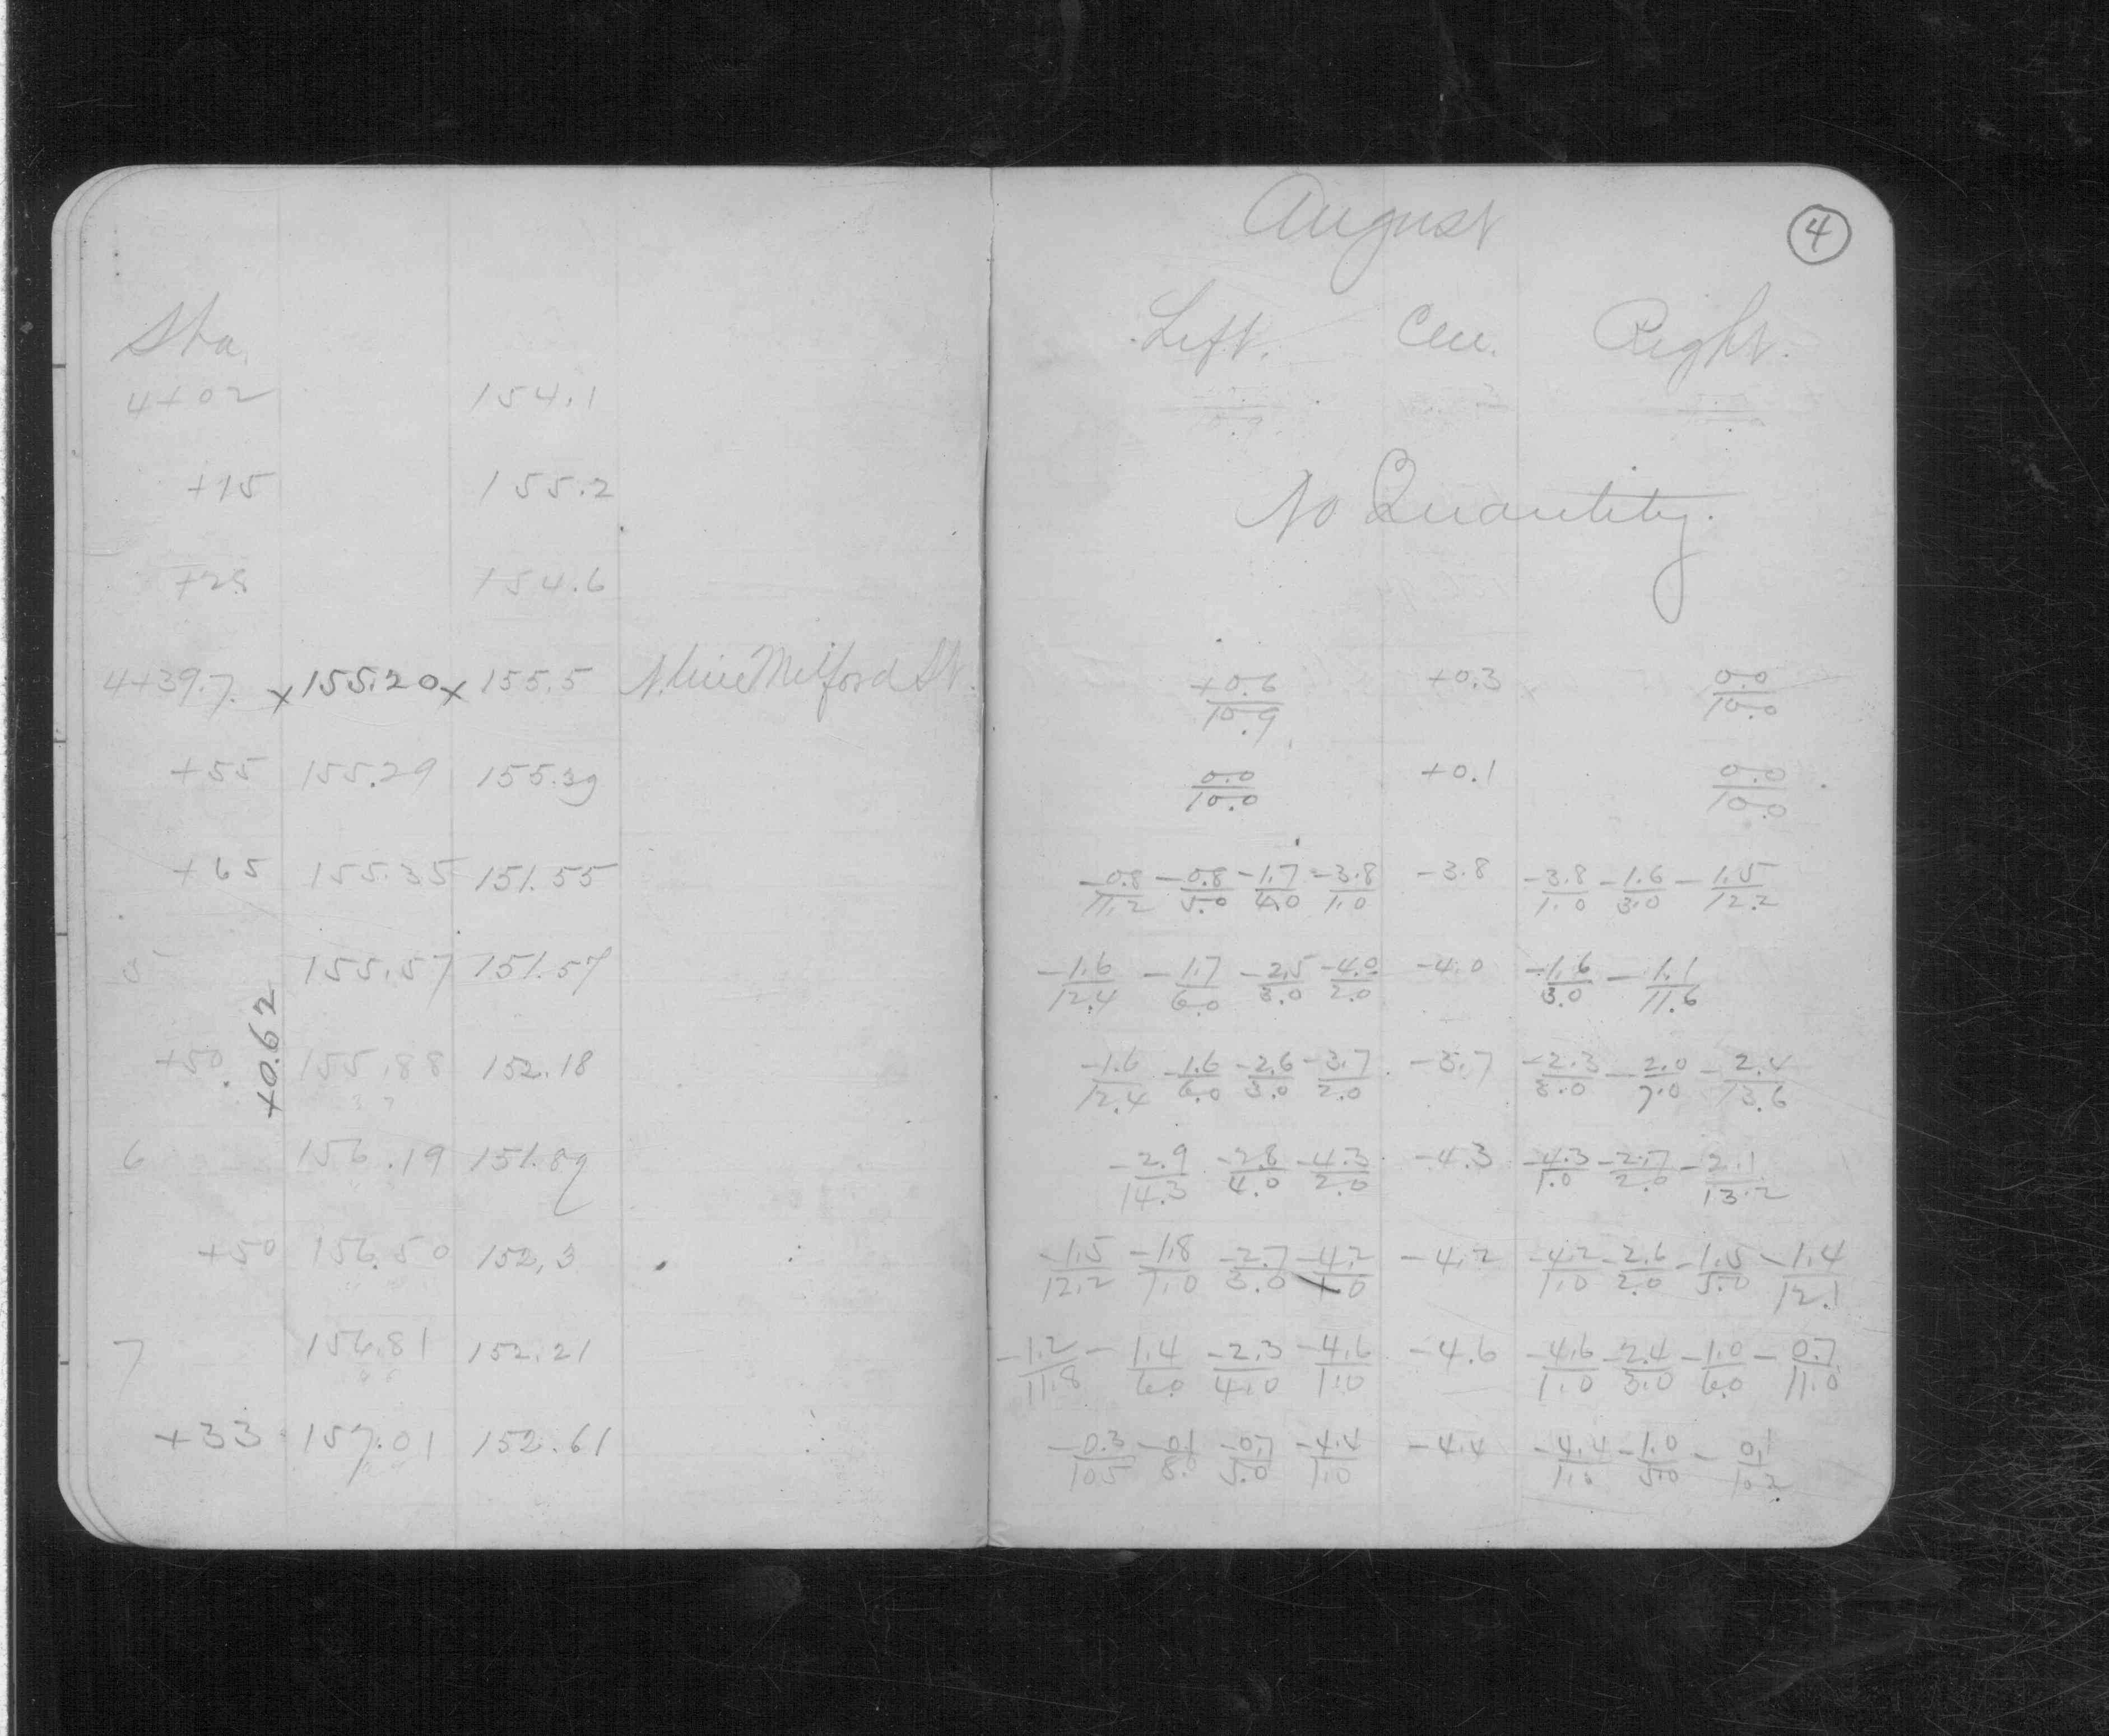 August
4
Sta. Left. Cen. Right.
4+02 154.1
+15 155.2
No Quantity.
+25 154.6
4+39.7 x 155.20 x 155.5 N. line Milford St. +0.6/10.9 +0.3 0.0/10.0
+55 155.29 155.39 0.0/10.0 +0.1 0.0/10.0
+65 155.35 151.55 -0.8/11.2 -0.8/5.0 -1.7/4.0 -3.8/1.0 -3.8 -3.8/1.0 -1.6/3.0 -1.5/12.2
5 155.57 151.57 -1.6/12.4 -1.7/6.0 -2.5/3.0 -4.0/2.0 -4.0 -1.6/3.0 -1.1/11.6
+0.62
+50 155.88 152.18 -1.6/12.4 -1.6/6.0 -2.6/3.0 -3.7/2.0 -3.7 -2.3/3.0 -2.0/7.0 -2.4/13.6
6 156.19 151.89 -2.9/14.3 -2.8/4.0 -4.3/2.0 -4.3 -4.3/1.0 -2.7/2.0 -2.1/13.2
+50 156.50 152.3 -1.5/12.2 -1.8/7.0 -2.7/3.0 -4.2/1.0 -4.2 -4.2/1.0 -2.6/2.0 -1.5/5.0 -1.4/12.1
7 156.81 152.21 -1.2/11.8 -1.4/6.0 -2.3/4.0 -4.6/1.0 -4.6 -4.6/1.0 -2.4/3.0 -1.0/6.0 -0.7/11.0
+33 157.01 152.61 -0.3/10.5 -0.1/8.0 -0.7/5.0 -4.4/1.0 -4.4 -4.4/1.0 -1.0/5.0 -0.1/10.2